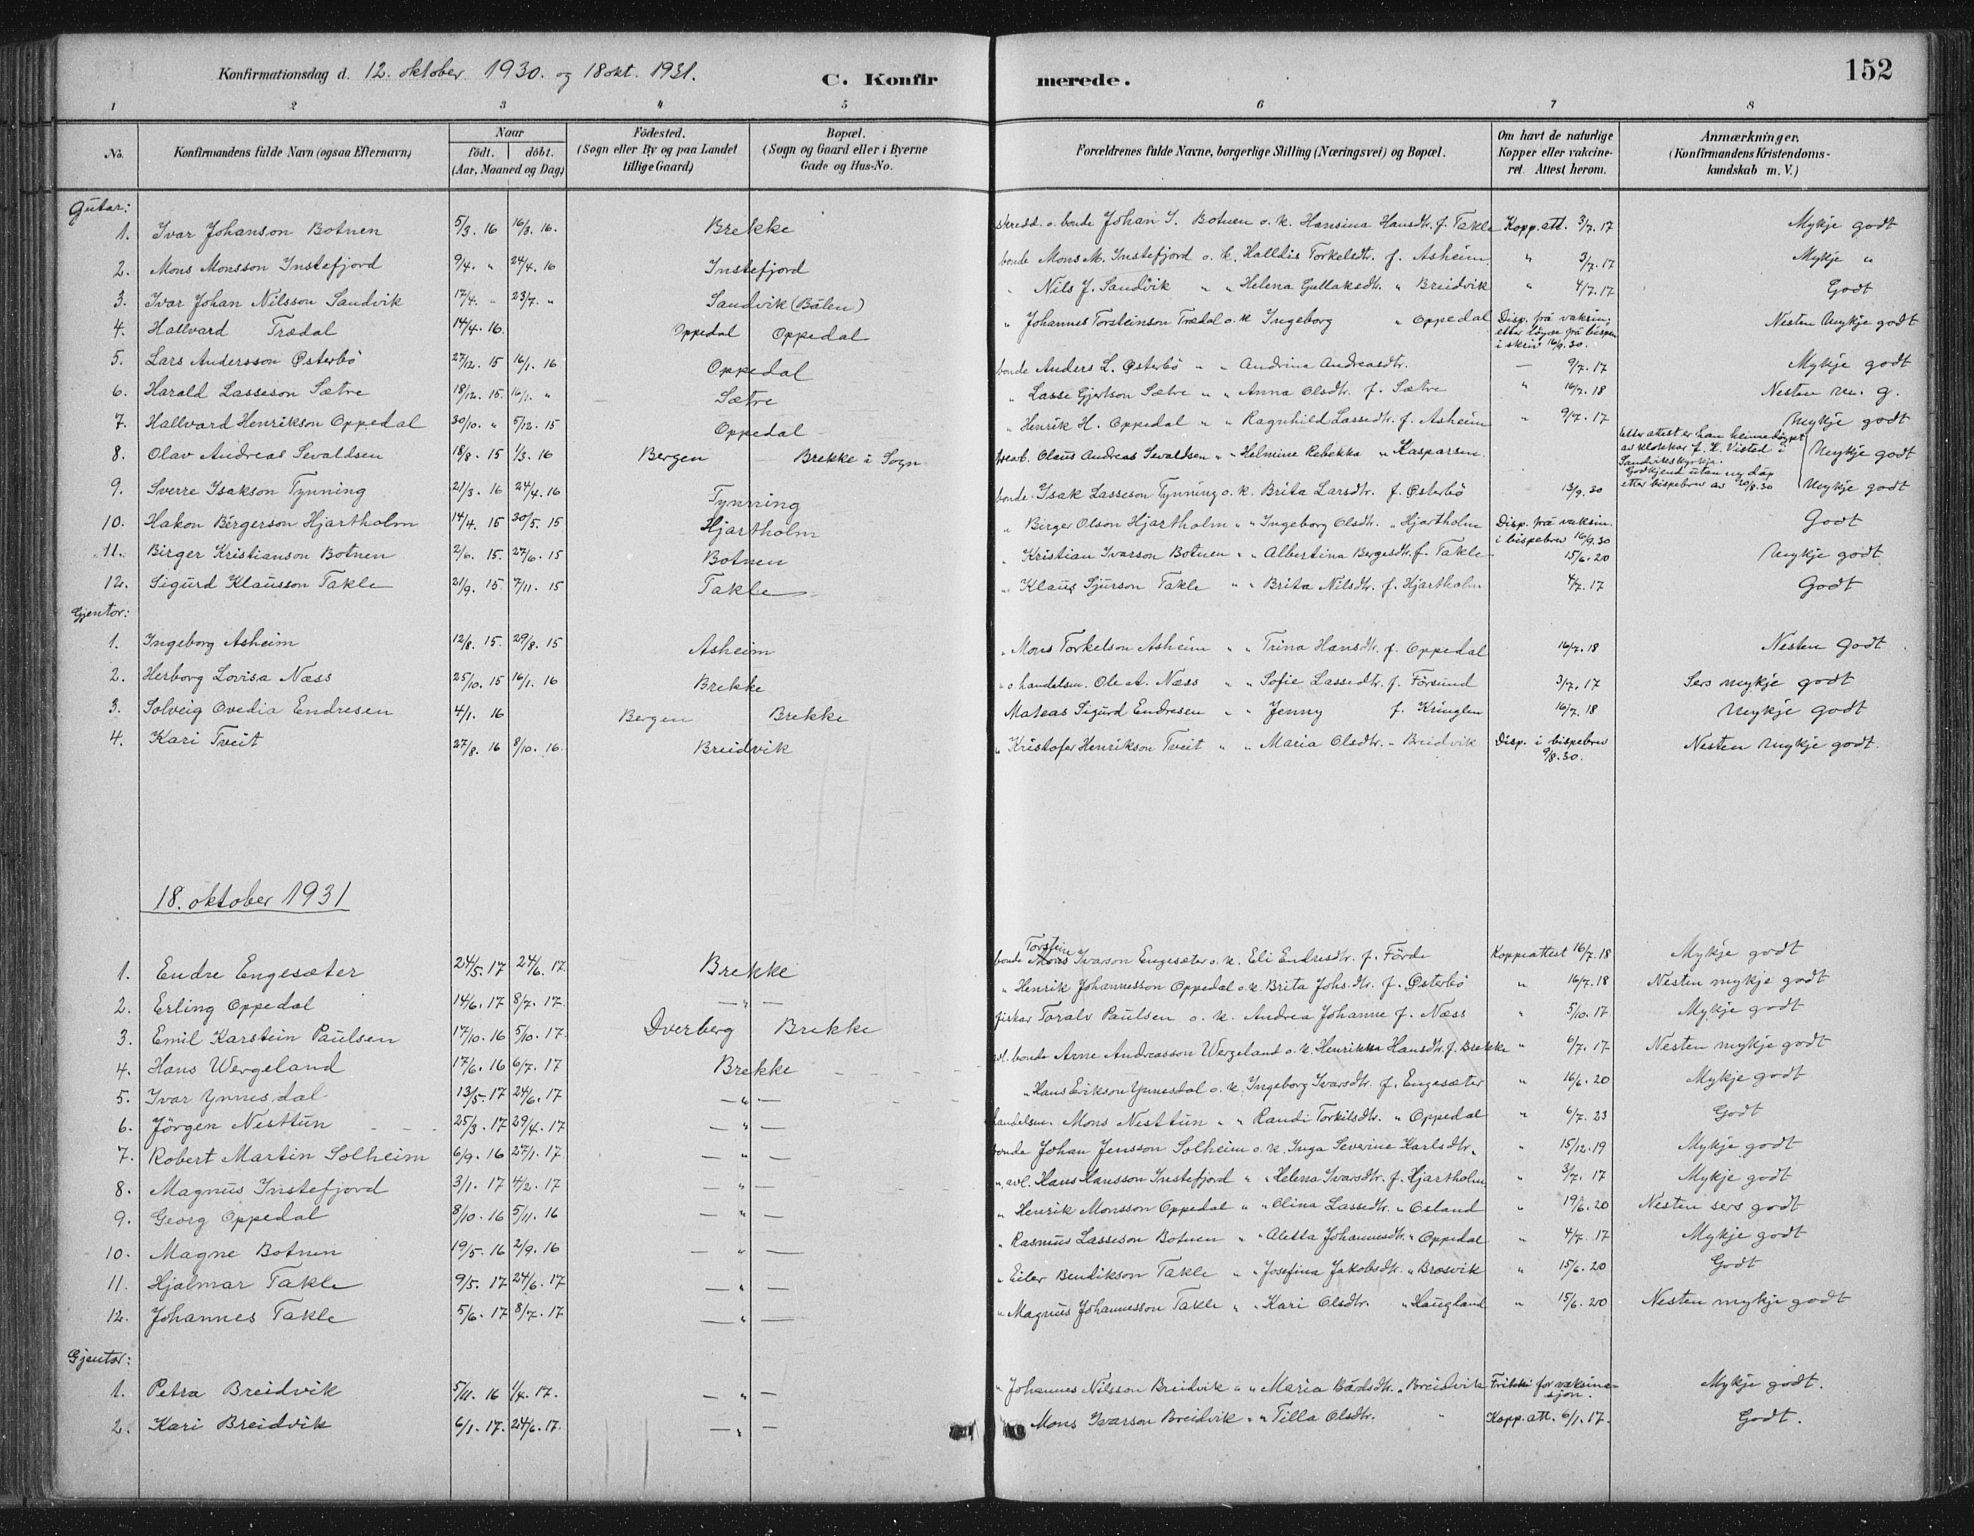 Konfirmationsdag d. 12. oktober 1930. og 18 okt. 1931. C. Konfirmerede. 152
1 2 3 4 5 6 7 8
No. Konfirmandens fulde Navn (ogsaa Efternavn) Naar födt. döbt. (Aar, Maaned og Dag) Födested. (Sogn eller By og paa Landet tillige Gaard) Bopæl. (Sogn og Gaard eller i Byerne Gade og Hus-No. Forældrenes fulde Navne, borgerlige Stilling (Næringsvei) og Bopæl. Om havt de naturlige Kopper eller vakcineret. Attest herom. Anmærkninger, (Konfirmandens Kristendomskundskab m. V.)
Gutar:
1. Ivar Johanson Botnen 5/3. 16 16/3. 16. Brekke skredd. o. bonde Johan I. Botnen o. k. Hansina Hansdtr. f. Takle Kopp. att. 3/7. 17 Mykje godt
2. Mons Monsson Instefjord 9/4. " 24/4. 16 Instefjord bonde Mons M. Instefjord o. k. Halldis Torkelsdtr. f. Asheim. " 3/7. 17 Mykje "
3. Ivar Johan Nilsson Sandvik 17/4. " 23/7. " Sandvik (Bålen) " Nils J. Sandvik " " Helena Gullaksdtr. " Breidvik " 4/7. 17 Godt
4. Hallvard Trædal 14/4. 16. Oppedal Oppedal " Johannes Torsteinson Trædal o. k. Ingeborg " Oppedal Disp. frå vaksin. etter løyve frå bispen i skriv 16/9. 30. Nesten Mykje godt
5. Lars Andersson Østerbö 27/12. 15 16/1. 16 Oppedal bonde Anders L. Østerbö " " Andrina Andreasdtr. — 9/7. 17 Mykje godt
6. Harald Lasseson Sætre 18/12. 15. 16/1. " Sætre " Lasse Gjertson Sætre " " Anna Olsdtr. f. Sætre " 16/7. 18 Nesten m. g.
7. Hallvard Henrikson Oppedal 30/10. " 5/12. 15 Oppedal " Henrik H. Oppedal " " Ragnhild Lassedtr. f. Asheim " 9/7. 17 Mykje godt
8. Olav Andreas Sevaldsen 18/8. 15 1/3. 16 Bergen Brekke i Sogn Olaus Andreas Sevaldsen " " Helmine Rebekka " Kasparsen Etter attest er han heimedøypt av klokkar f. K. Visted i Sandvikskyrkje. Godkjend utan ny dåp etter bispebrev av 20/8. 30 Mykje godt
9. Sverre Isakson Tynning 21/3. 16 24/4. 16 Tynning bonde Isak Lasseson Tynning o. k. Brita Larsdtr. f. Østerbö 13/9. 30 Mykje godt
10. Hakon Bergerson Hjartholm 14/4. 15 30/5. 15 Hjartholm " Birger Olson Hjartholm " " Ingeborg Olsdtr. " Hjartholm Disp. frå vaksin. i bispebrev 16/9. 30 Godt
11. Birger Kristianson Botnen 2/6. 15. 27/6. 15 Botnen " Kristian Ivarson Botnen " " Albertina Bergesdtr. f. Takle 15/6. 20 Mykje godt.
12. Sigurd Klausson Takle 21/9. 15 7/11. 15 Takle " Klaus Sjurson Takle " " Brita Nilsdtr. f. Hjartholm 4/7. 17 Godt
Gjentor:
1. Ingeborg Asheim 12/8. 15. 29/8. 15 Asheim " Mons Torkelson Asheim " " Trina Hansdtr. f. Oppedal 16/7. 18 Nesten Godt
2. Herborg Lovisa Næss 25/10. 15 16/1. 16 Brekke " o. handelsm. Ole A. Næss " " Sofie Lassedtr. f. Försund 3/7. 17 Sers mykje godt
3. Solveig Ovedia Endresen 4/1. 16 Bergen Brekke Mateas Sigurd Endresen " " Jenny f. Kringlen 16/7. 18 Mykje godt
4. Kari Tveit 27/8. 16 8/10. 16. Breidvik " Kristofer Henrikson Tveit " " Maria Olsdtr. " Breidvik Disp. i bispebrev 9/8. 30. Nesten mykje godt.
18. oktober 1931
1. Endre Engesæter 24/5. 17 24/6. 17. Brekke bonde Torstein Ivarson Engesæter o. k. Eli Endresdtr. f. Förde Koppeattest 16/7. 18 Mykje godt
2. Erling Oppedal 14/6. 17 8/7. 17. — " — " Henrik Johannesson Oppedal o. k. Brita Johs. dtr. f. Østerbö " 16/7. 18 Nesten mykje godt
3. Emil Karstein Paulsen 17/10. 16 5/10. 17. Dverberg Brekke fiskar Toralv Paulsen o. k. Andrea Johanne f. Næss " 5/10. 17 Mykje godt
4. Hans Wergeland 17/6. 16 6/7. 17 Brekke bonde Arne Andreasson Wergeland o. k. Henrikka Hansdtr. f. Brekke " 6/7. 17 Nesten mykje godt
5. Ivar Ynnesdal 13/5. 17 24/6. 17 — " — " Hans Erikson Ynnesdal o. k. Ingeborg Ivarsdtr. f. Engesæter " 16/6. 20 Mykje godt
6. Jörgen Nesttun 25/3. 17 29/4. 17 — " — handelsm. Mons Nesttun " " Randi Torkilsdtr. " Oppedal " 6/7. 23 Godt
7. Robert Martin Solheim 6/9. 16 27/1. 17 — " — bonde Johan Jensson Solheim o. k. Inga Severine Karlsdtr. " 15/12. 19 Mykje godt
8. Magnus Instefjord 3/1. 17 4/2. 17 — " — " avl. Hans Hansson Instefjord " " Helena Ivarsdtr. f. Hjartholm " 3/7. 17 Mykje godt
9. Georg Oppedal 8/10. 16 5/11. 16 — " — " Henrik Monsson Oppedal " " Olina Lassedtr. " Osland " 19/6. 20 Nesten sers godt
10. Magne Botnen 19/5. 16 2/9. 16 — " — " Rasmus Lasseson Botnen " " Aletta Johannesdtr. " Oppedal " 4/7. 17 Mykje godt
11. Hjalmar Takle 9/5. 17 24/6. 17 — " — " Eiler Bendikson Takle " " Josefina Jakobsdtr. " Brosvik " 15/6. 20 Godt
12. Johannes Takle 5/6. 17 8/7. 17 — " — " Magnus Johannesson Takle " " Kari Olsdtr. " Haugland " 15/6. 20 Nesten mykje godt
Gjentor:
1. Petra Breidvik 5/11. 16 1/4. 17. — " — " Johannes Nilsson Breidvik " " Maria Bårdsdtr. " Breidvik Friteki for vaksinasjon. Mykje godt.
2. Kari Breidvik 6/1. 17. 24/6. 17. — " — Mons Ivarson Breidvik " " Tilla Olsdtr. " Kopp. att. 6/1. 17. Godt.